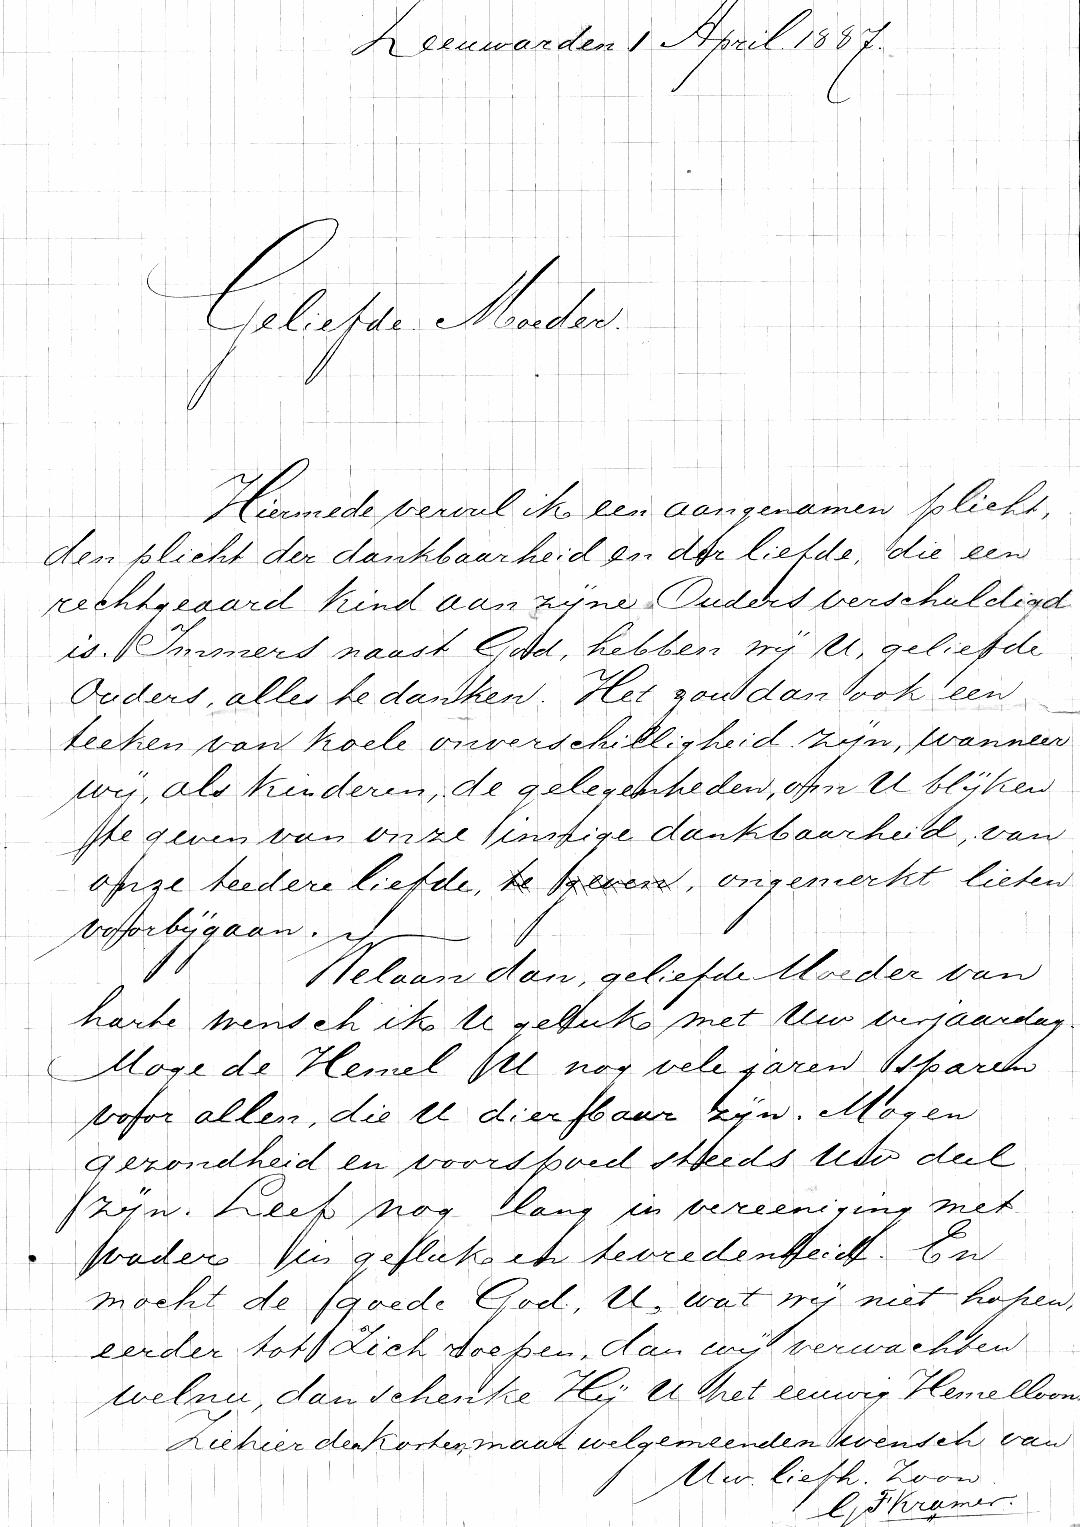 Leeuwarden 1 April 1887.
Geliefde Moeder.
Hiermede vervul ik een aangenamen plicht,
den plicht der dankbaarheid en der liefde, die een
rechtgeaard kind aan zijne Ouders verschuldigd
is. Immers naast God, hebben wij U, geliefde
Ouders, alles te danken. Het zou dan ook een
teeken van koele onverschilligheid zijn, wanneer
wij, als kinderen, de gelegenheden, om U blijken
te geven van onze innige dankbaarheid, van
onze teedere liefde, te geven, ongemerkt lieten
voorbijgaan.
Welaan dan, geliefde Moeder van
harte wensch ik U geluk met Uw verjaardag.
Moge de Hemel U nog vele jaren sparen
voor allen, die U dierbaar zijn. Mogen
gezondheid en voorspoed steeds Uw deel
zijn. Leef nog lang in vereeniging met
vader in geluk en tevredenheid. En
mocht de goede God, U, wat wij niet hopen,
eerder tot Zich roepen, dan wij verwachten
welnu, dan schenke Hij U het eeuwig Hemelloon.
Ziehier den korten, maar welgemeenden wensch van
Uw liefh. Zoon
G F Kramer.